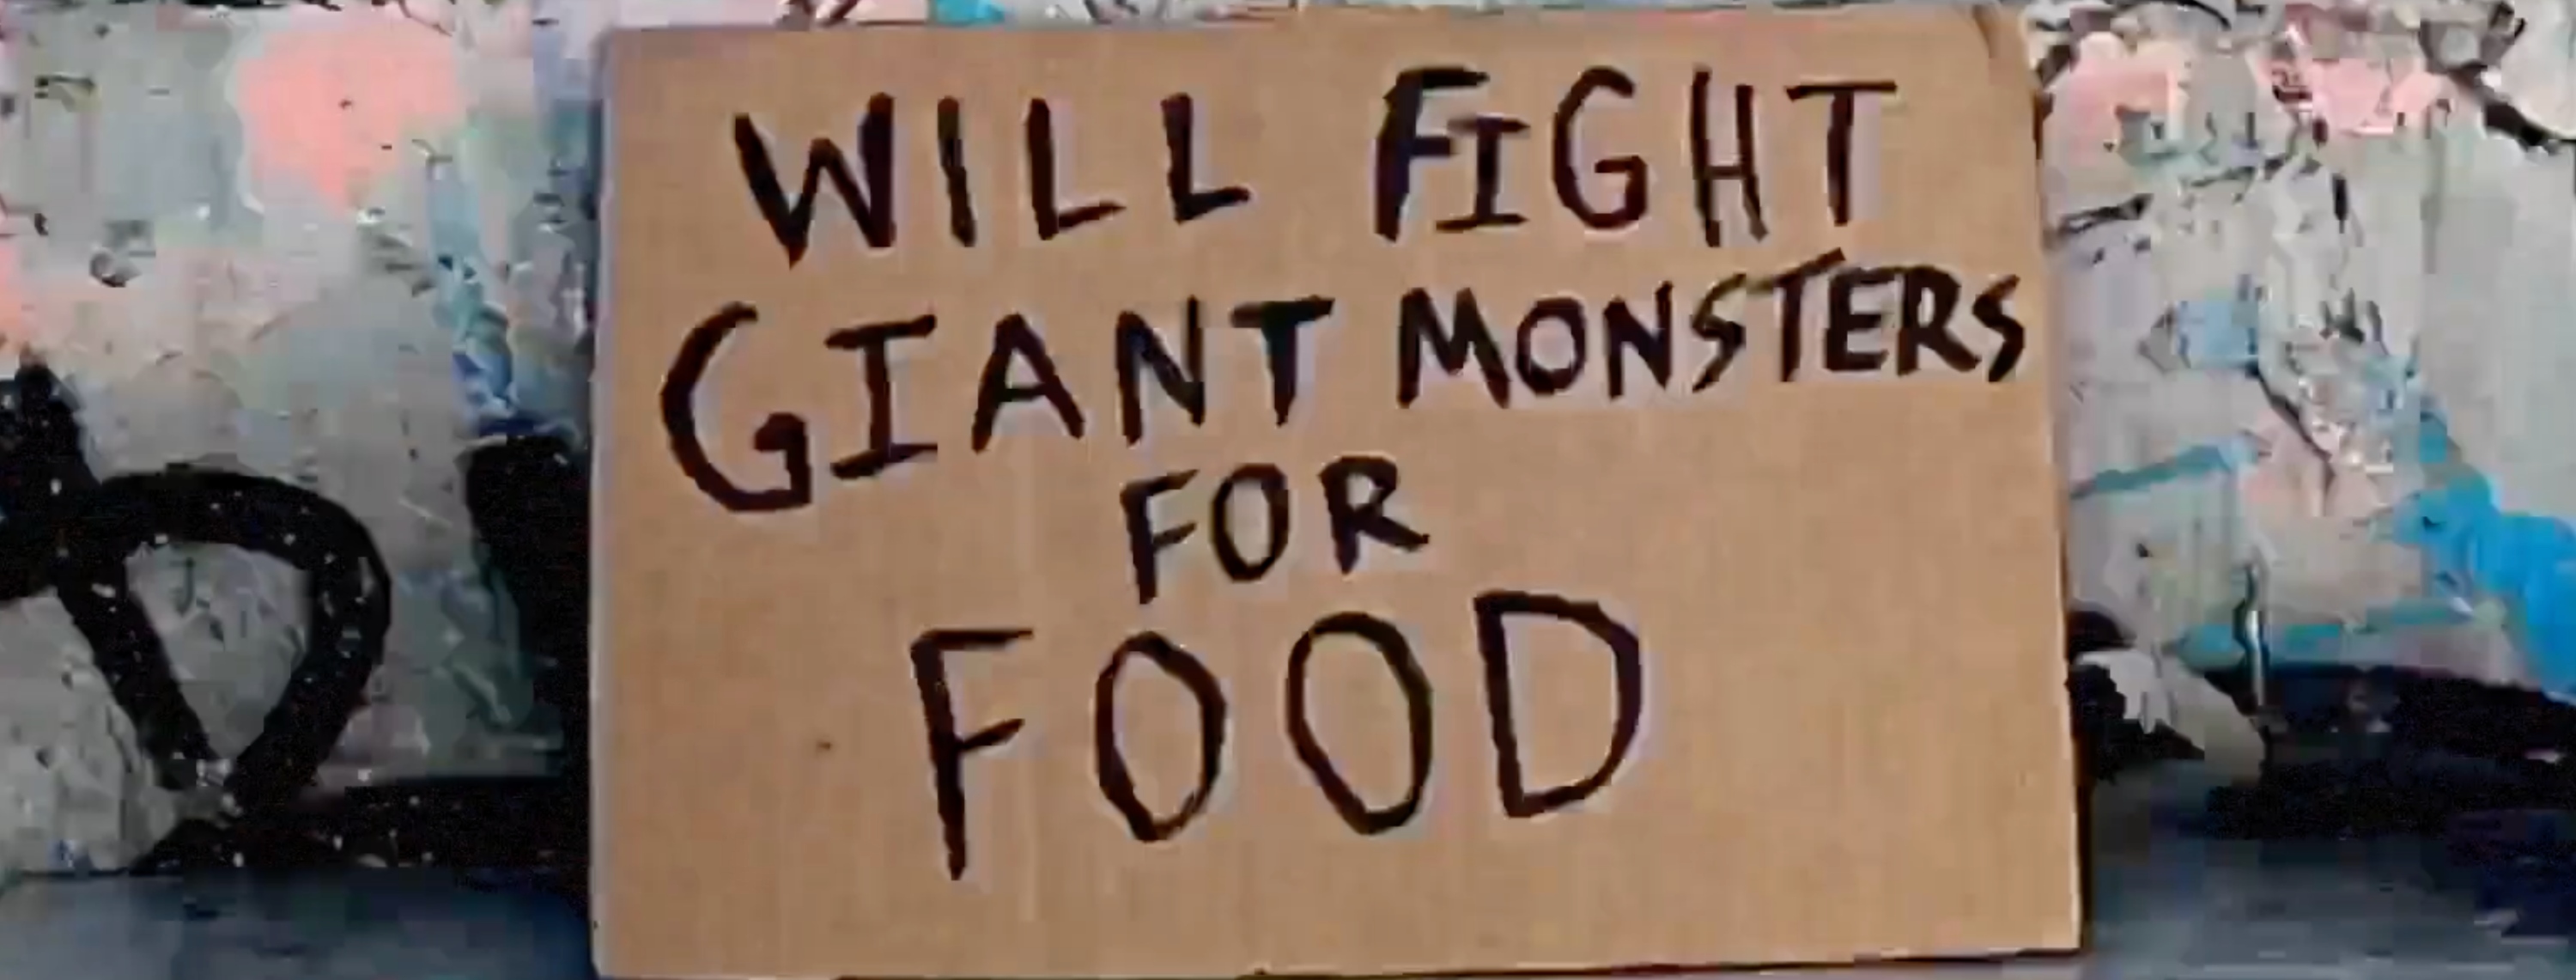 WILL FIGHT
GIANT MONSTERS
FOR
FOOD